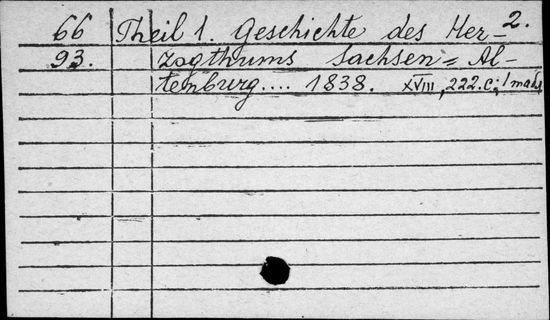 2.
66 Theil 1. Geschichte des Her-
93. zogthums Sachsen=Al-
tenburg.... 1838. XVIII, 222.c;